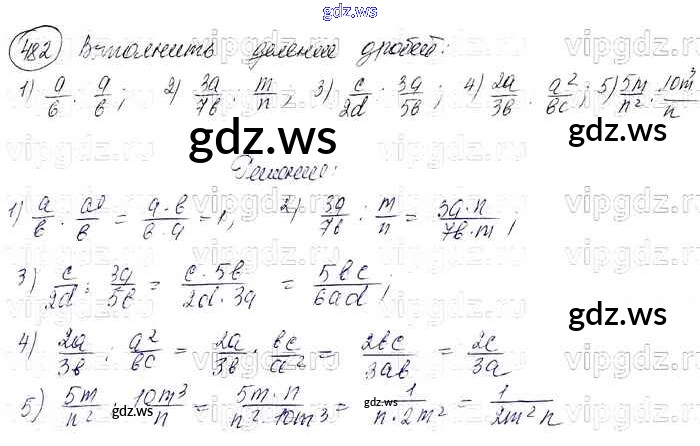 gdz.ws
482 Выполнить деление дробей:
1) a/в : a/в; 2) 3a/7в : m/n, 3) c/2d : 3a/5в; 4) 2a/3в : a²/вc; 5) 5m/n² : 10m³/n
gdz.ws
Решение:
1) a/в : a/в = a·в/в·a = 1, 2) 3a/7в : m/n = 3a·n/7в·m;
3) c/2d : 3a/5в = c·5в/2d·3a = 5вc/6ad;
gdz.ws
4) 2a/3в : a²/вc = 2a/3в · вc/a² = 2вc/3aв = 2c/3a
5) 5m/n² : 10m³/n = 5m·n/n²·10m³ = 1/n·2m² = 1/2m²n
gdz.ws